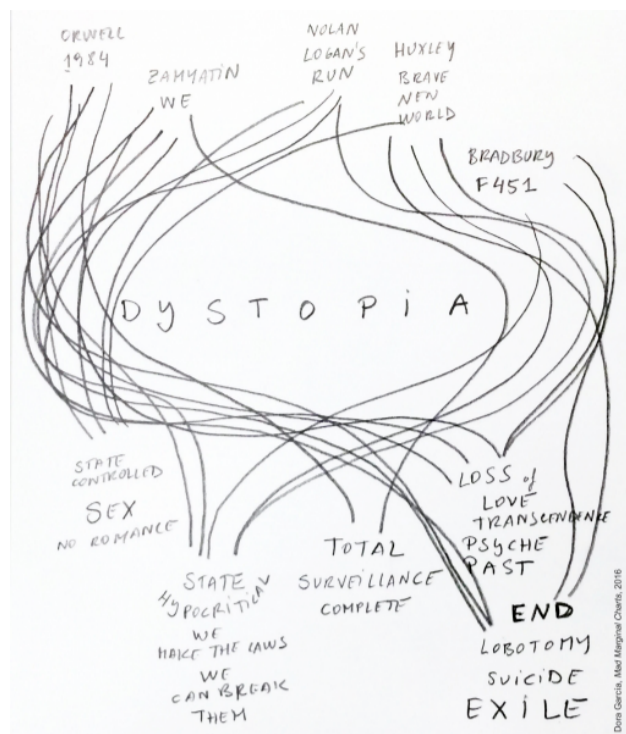 ORWELL
1984
ZAMYATIN
WE
NOLAN
LOGAN'S
RUN
HUXLEY
BRAVE
NEW
WORLD
BRADBURY
F451
DYSTOPIA
STATE
CONTROLLED
SEX
NO ROMANCE
STATE
HYPOCRITICAL
WE
MAKE THE LAWS
WE
CAN BREAK
THEM
TOTAL
SURVEILLANCE
COMPLETE
LOSS of
LOVE
TRANSCENDENCE
PSYCHE
PAST
END
LOBOTOMY
SUICIDE
EXILE
Dora García, Mad Marginal Charts, 2016